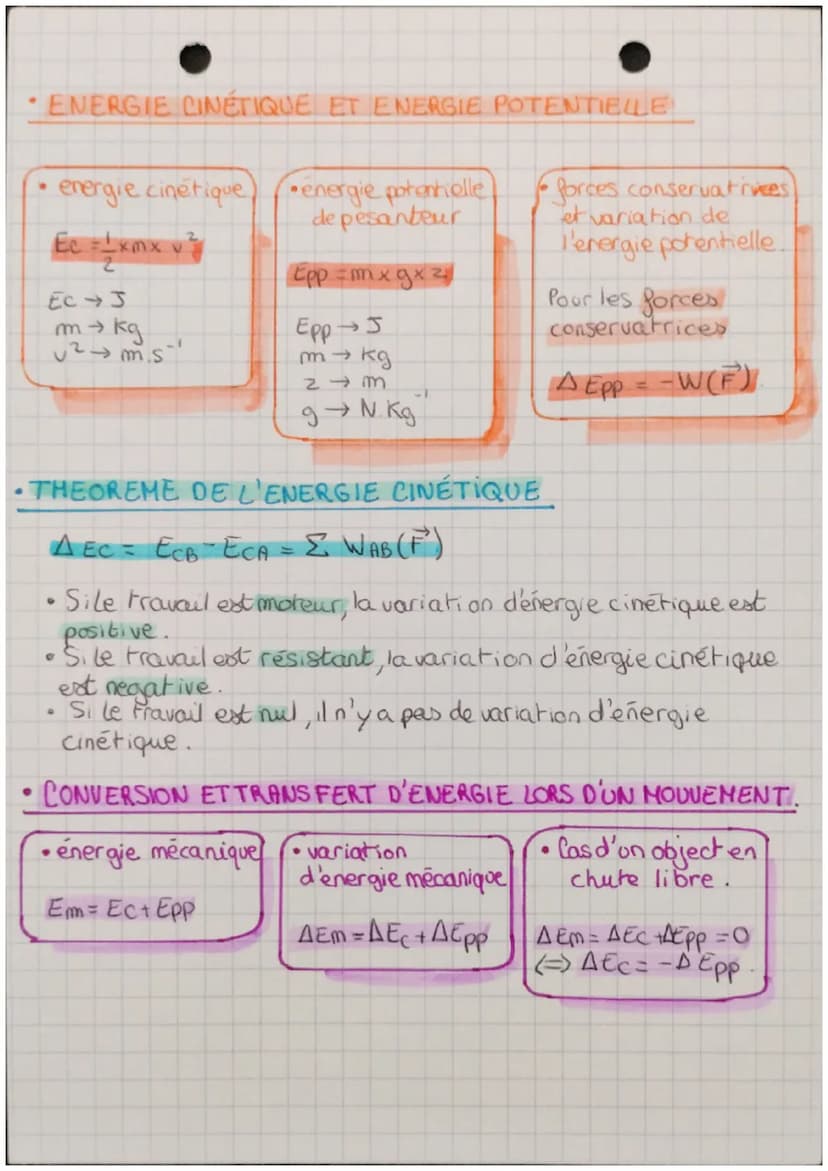 • ENERGIE CINÉTIQUE ET ENERGIE POTENTIELLE
• energie cinétique
Ec = 1/2 x m x v²
Ec → J
m → kg
v² → m.s⁻¹
• énergie potentielle
de pesanteur
Epp = m x g x z
Epp → J
m → kg
z → m
g → N.Kg⁻¹
• forces conservatrices
et variation de
l'energie potentielle.
Pour les forces
conservatrices
Δ Epp = -W(F⃗)
• THEOREME DE L'ENERGIE CINÉTIQUE
Δ EC = ECB - ECA = Σ WAB(F⃗)
• Si le travail est moteur, la variation d'énergie cinétique est
positive.
• Si le travail est résistant, la variation d'énergie cinétique
est negative.
• Si le travail est nul, il n'y a pas de variation d'énergie
cinétique.
• CONVERSION ET TRANSFERT D'ENERGIE LORS D'UN MOUVEMENT.
• énergie mécanique
Em = Ec + Epp
• variation
d'énergie mécanique
ΔEm = ΔEc + ΔEpp
• Cas d'un object en
chute libre.
ΔEm = ΔEc + ΔEpp = 0
⟺ ΔEc = -Δ Epp.